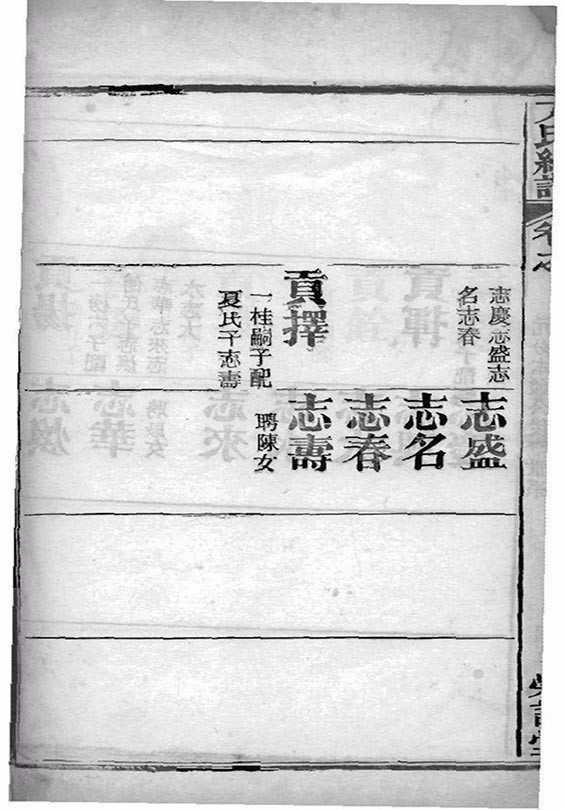 氏總譜
卷之
志慶志盛志
名志春
貢擇
一桂嗣子配
夏氏子志壽
志盛
志名
志春
志壽
聘陳女